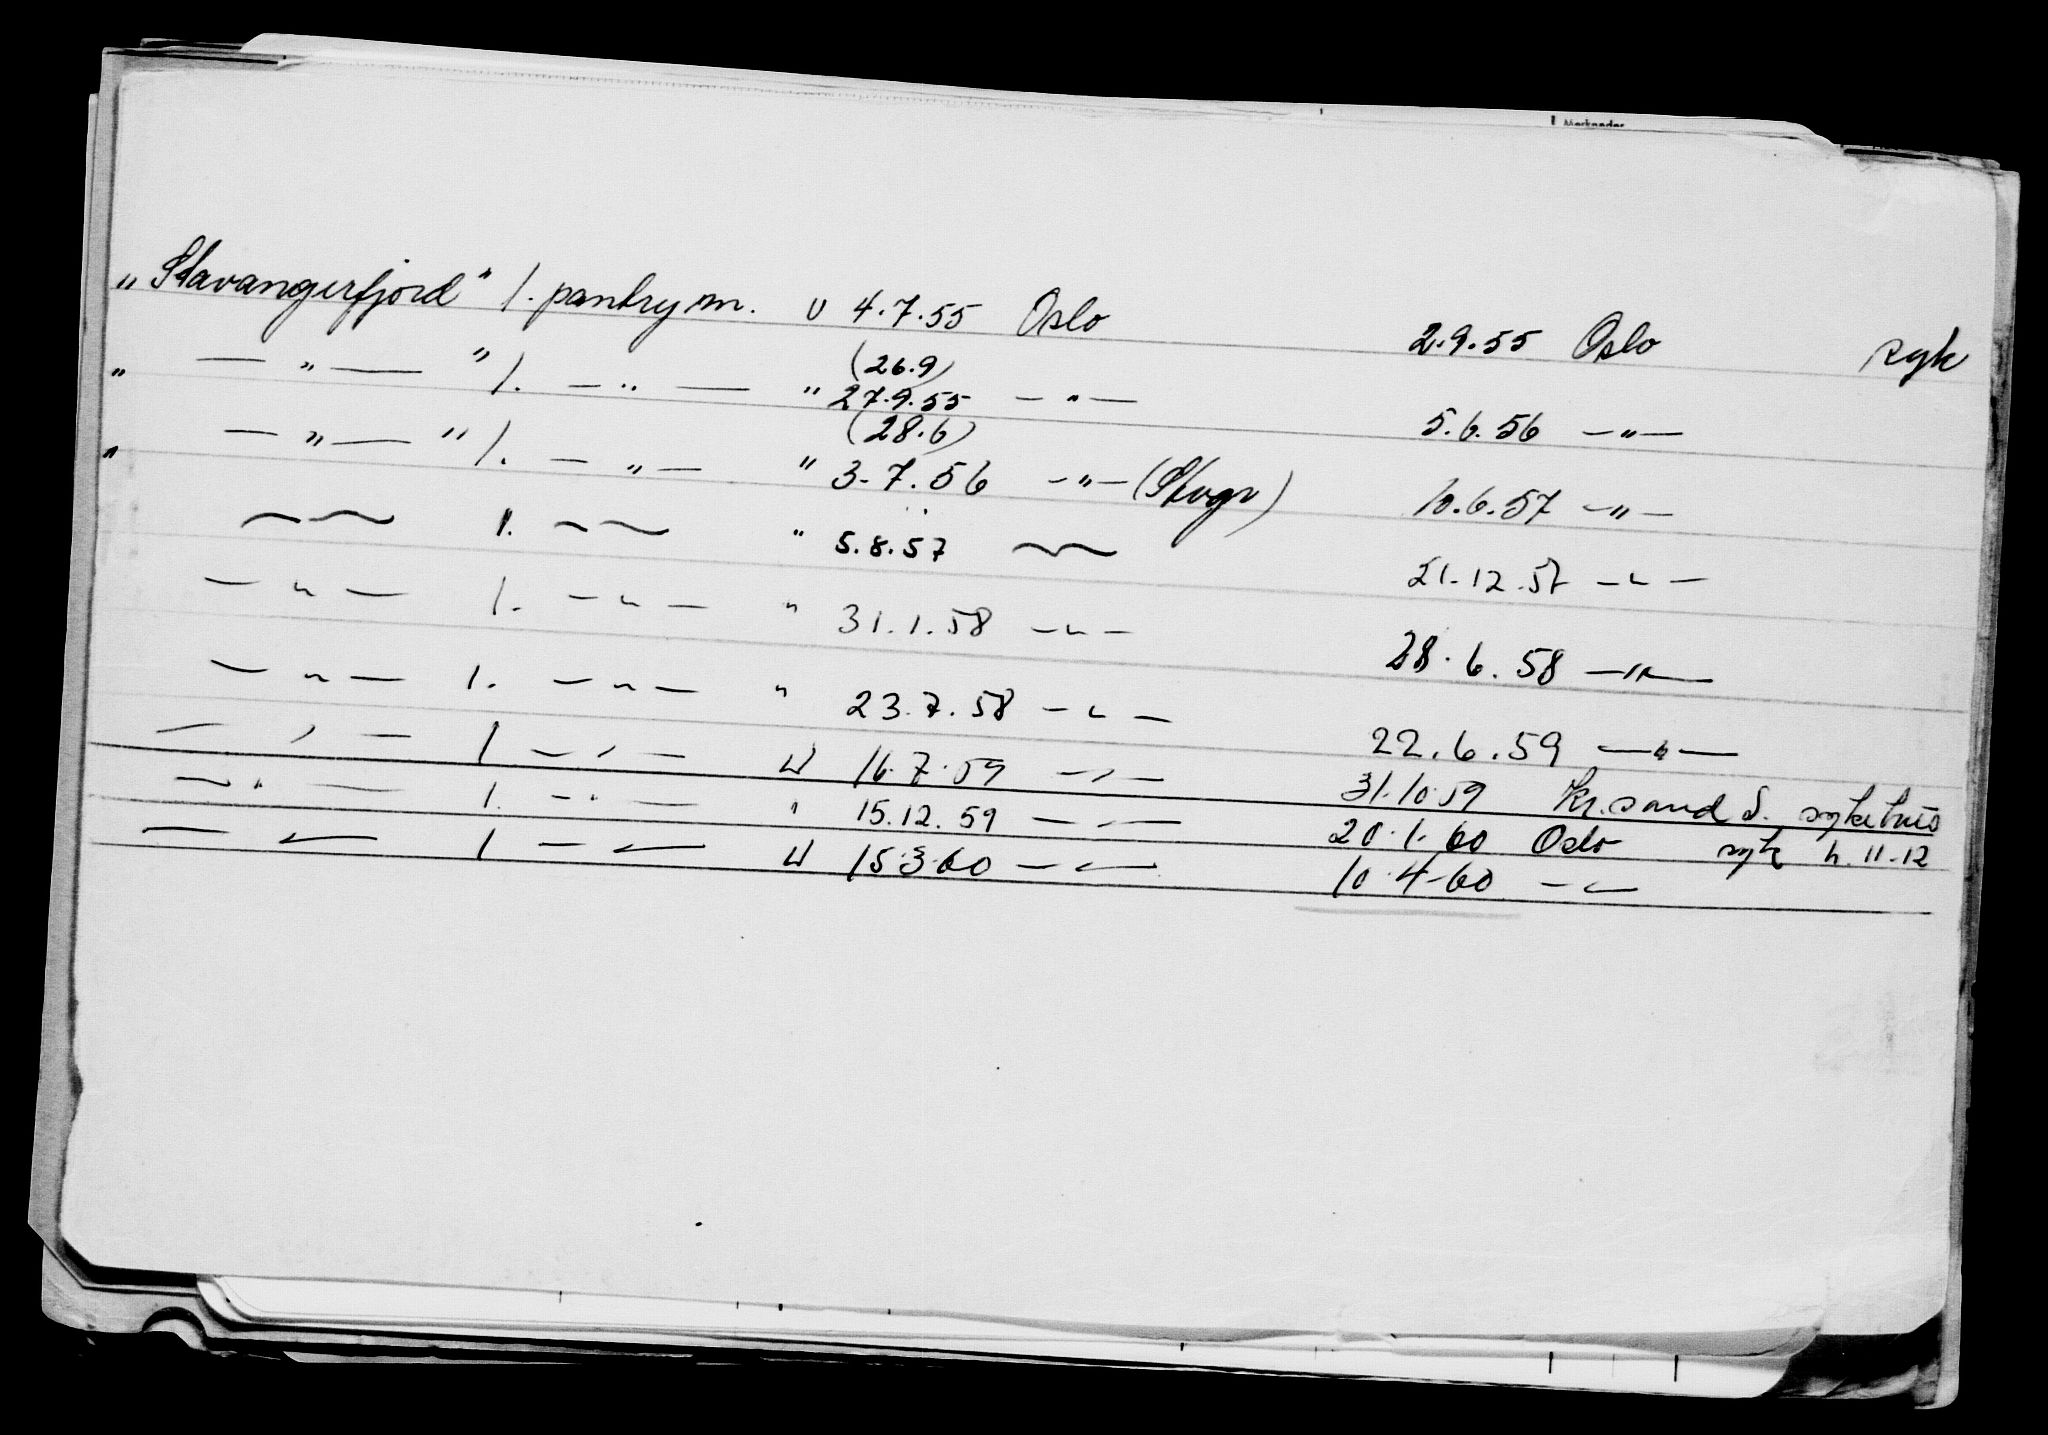 Merknader
„Stavangerfjord" 1. pantrym. u 4.7.55 Oslo 2.9.55 Oslo syk
„ — „ — " 1. — „ — " (26.9) 27.9.55 — „ — 5.6.56 — „ —
„ — „ — " 1. — „ — " (28.6) 3.7.56 — „ — (Stvgr) 10.6.57 — „ —
— „ — 1. — „ — " 5.8.57 — „ — 21.12.57 — „ —
— „ — 1. — „ — " 31.1.58 — „ — 28.6.58 — „ —
— „ — 1. — „ — " 23.7.58 — „ — 22.6.59 — „ —
— „ — 1 — „ — u 16.7.59 — „ — 31.10.59 Kr.sand S. sykehus
— „ — 1. — „ — " 15.12.59 — „ — 20.1.60 Oslo syk h. 11-12
— „ — 1 — „ — u 15.3.60 — „ — 10.4.60 — „ —